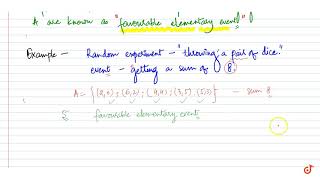 A are known as "favourable elementary event"
Example — Random experiment - "throwing a pair of dice."
event - getting a sum of 8.
A = {(2,6); (6,2); (4,4); (3,5), (5,3)} — sum 8
5 favourable elementary events